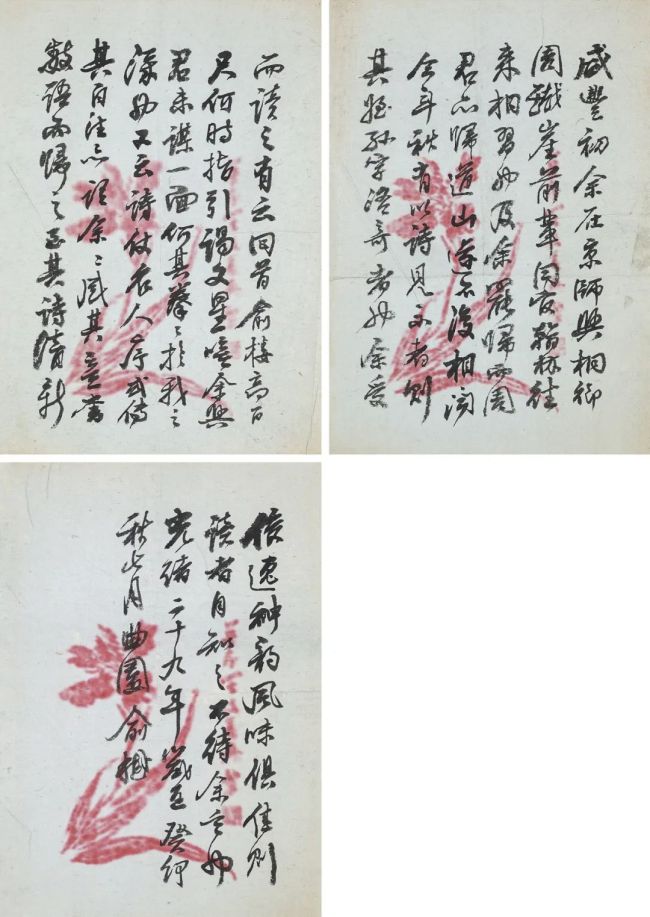 咸豐初余在京師與桐鄉
周鐵崖前輩同官翰林往
來相習也及余罷歸而周
君亦歸道山遂不復相聞
今年秋有以詩見示者則
其姪孫字洛奇者也余受
而讀之有云回首俞樓高百
尺何時指引謁文星噫余與
君未謀一面何其拳拳於我之
深也又云詩仗名人序或傳
其自注亦謂余余感其意書
數語而歸之至其詩清新
俊逸神韵風味俱佳則
讀者自知之不待余言也
光緒二十九年歲在癸卯
秋七月曲園俞樾